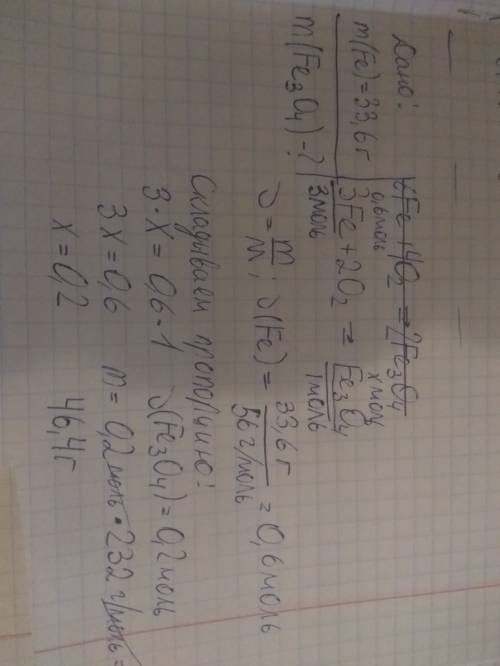 Дано:
m(Fe)=33,6г
m(Fe₃O₄)-?
6Fe+4O₂ = 2Fe₃O₄
0,6моль x моль
3Fe + 2O₂ = Fe₃O₄
3моль 1моль
ν = m/M ; ν(Fe) = 33,6г/56г/моль = 0,6 моль
Складываем пропорцию:
3·x = 0,6·1 ν(Fe₃O₄)=0,2 моль
3x=0,6 m= 0,2моль·232г/моль=
x=0,2 46,4г